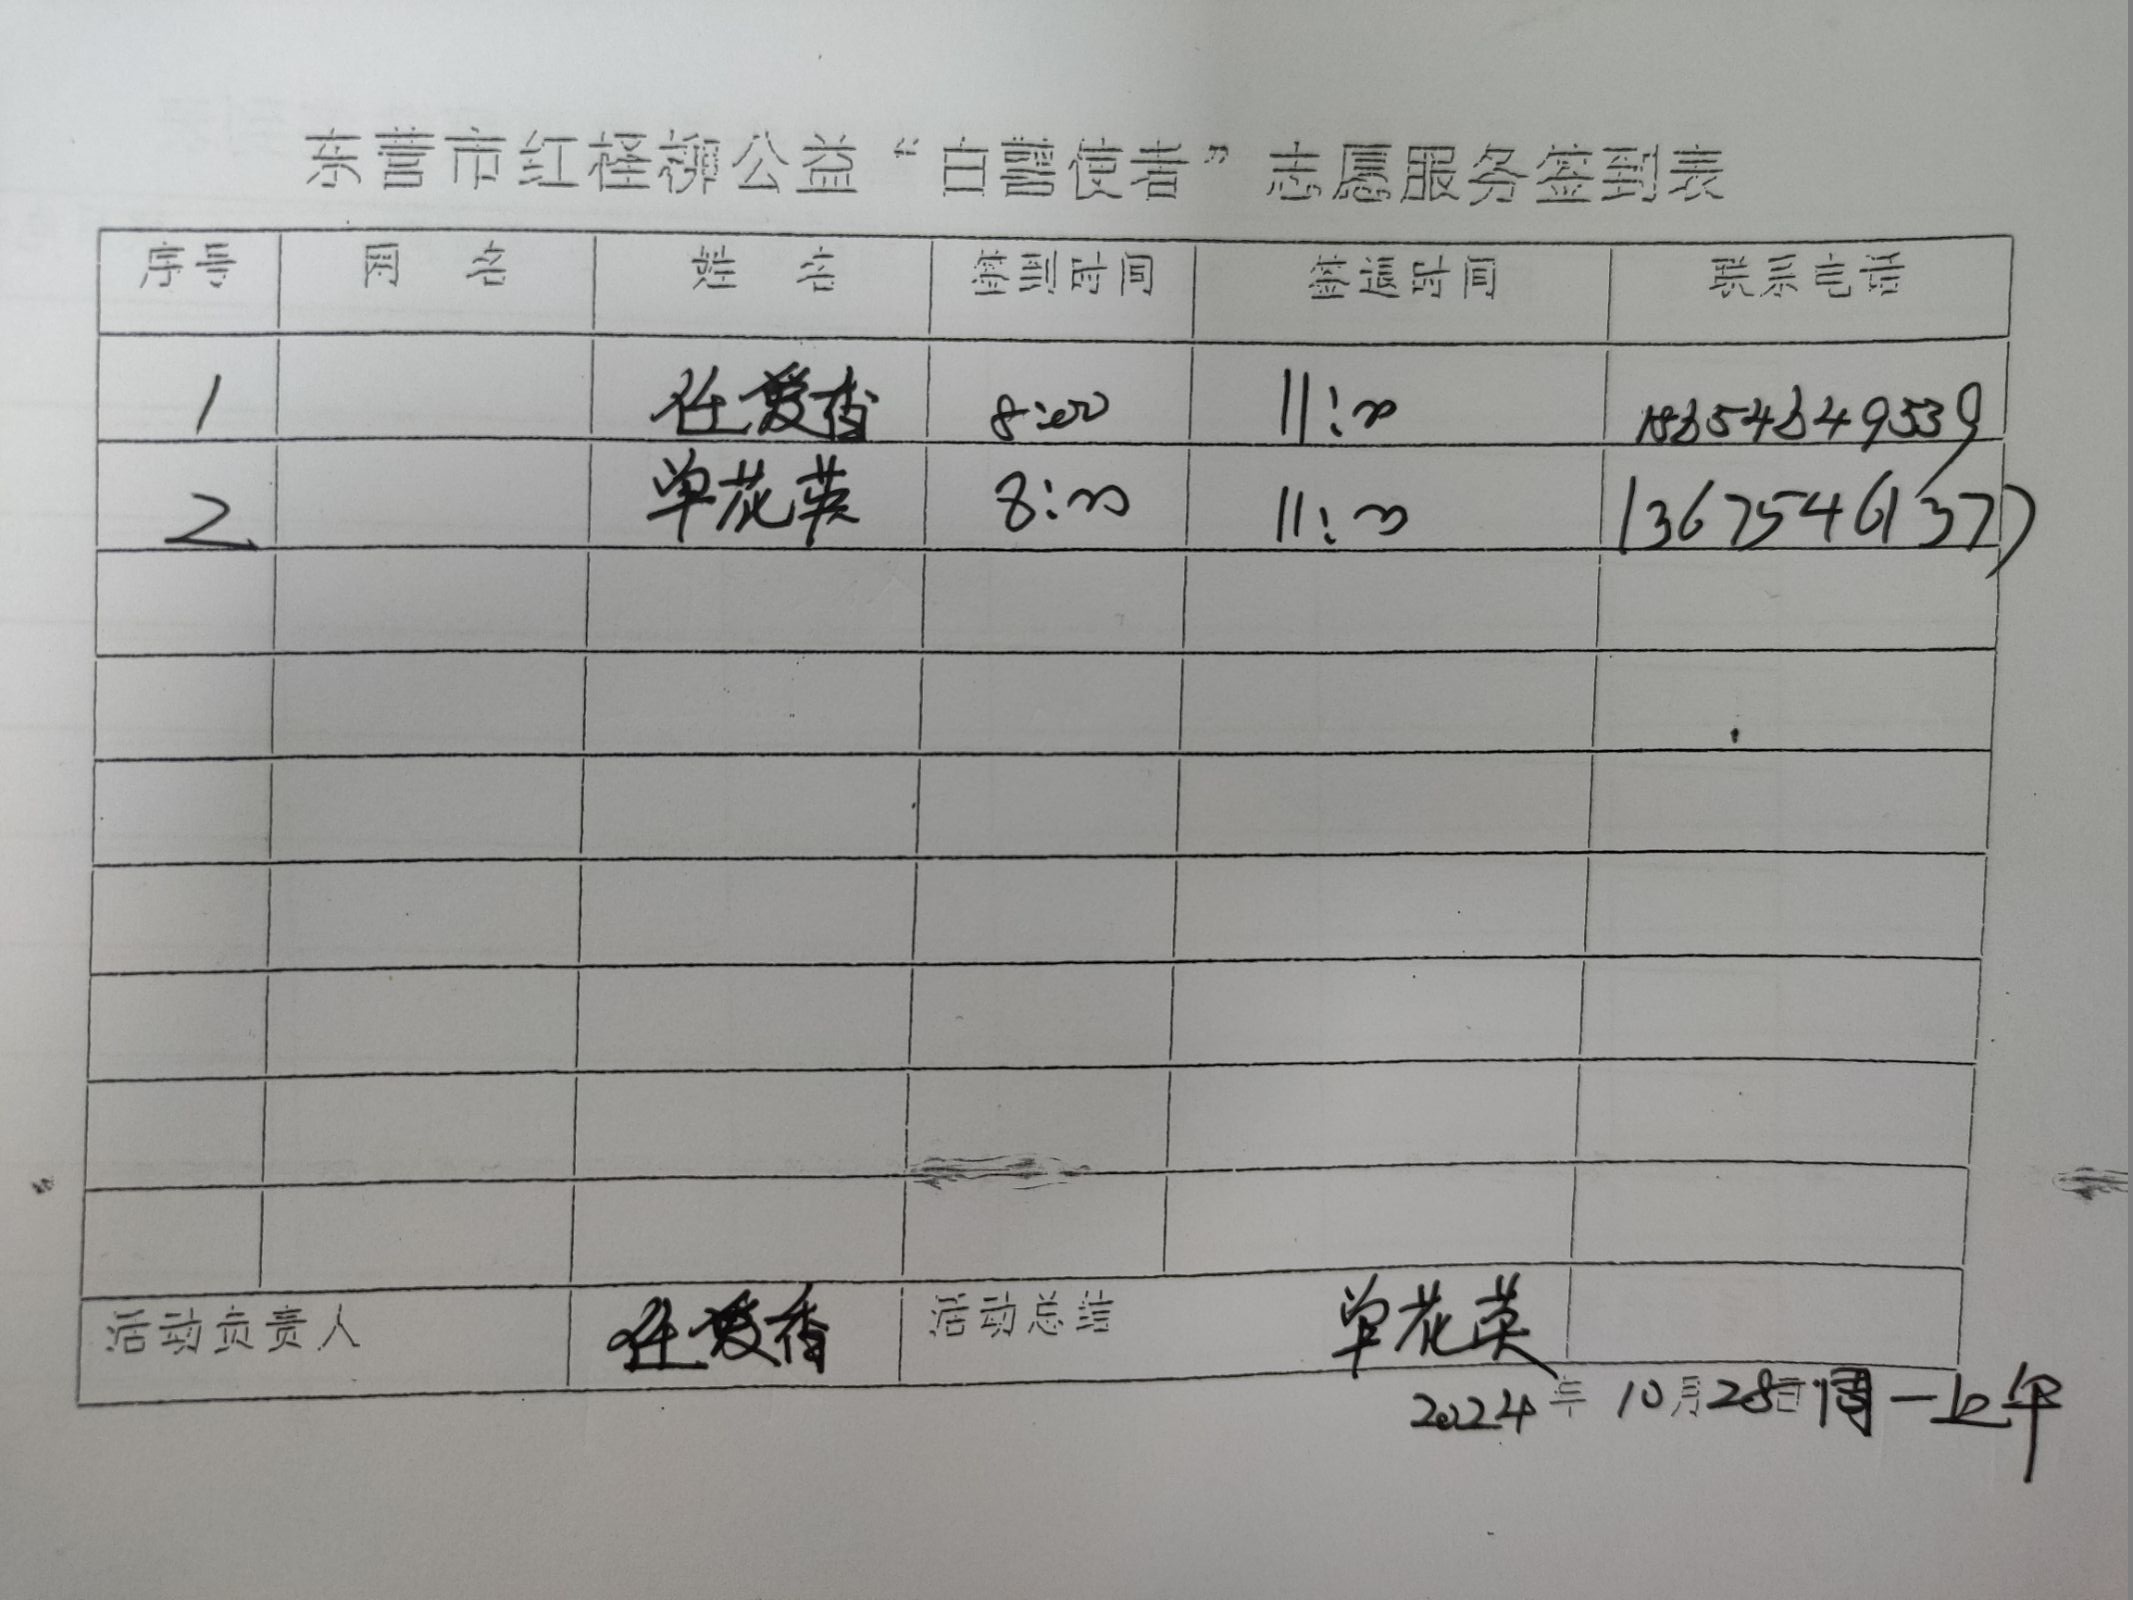 东营市红柽柳公益“白鹭使者”志愿服务签到表
序号 网 名 姓 名 签到时间 签退时间 联系电话
1 任爱香 8:00 11:00
2 单花英 8:00 11:00 13675461377
活动负责人 任爱香 活动总结 单花英
2024年10月28日周一上午